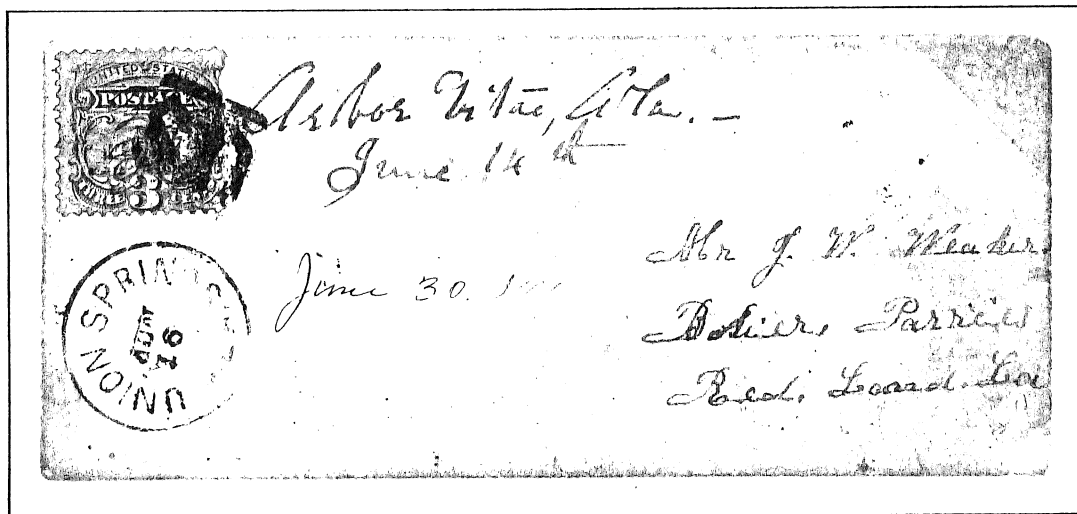 UNITED STATES
POSTAGE
THREE 3 CENTS
Arbor Vitae, Ala. –
June 14th
UNION SPRINGS
JUN
16
June 30.
Mr J. W. Meaker
Bosier, Parries
Red. Land. La